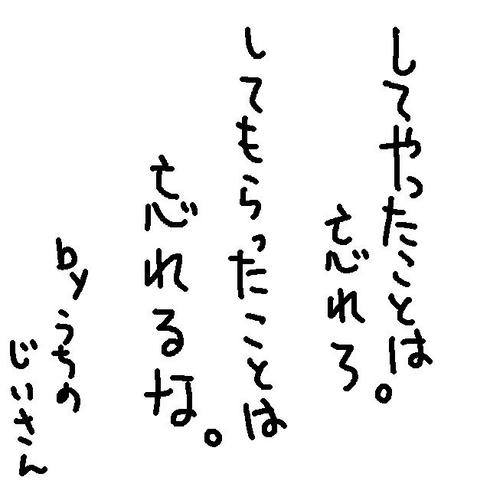 してやったことは
忘れろ。
してもらったことは
忘れるな。
byうちの
じいさん